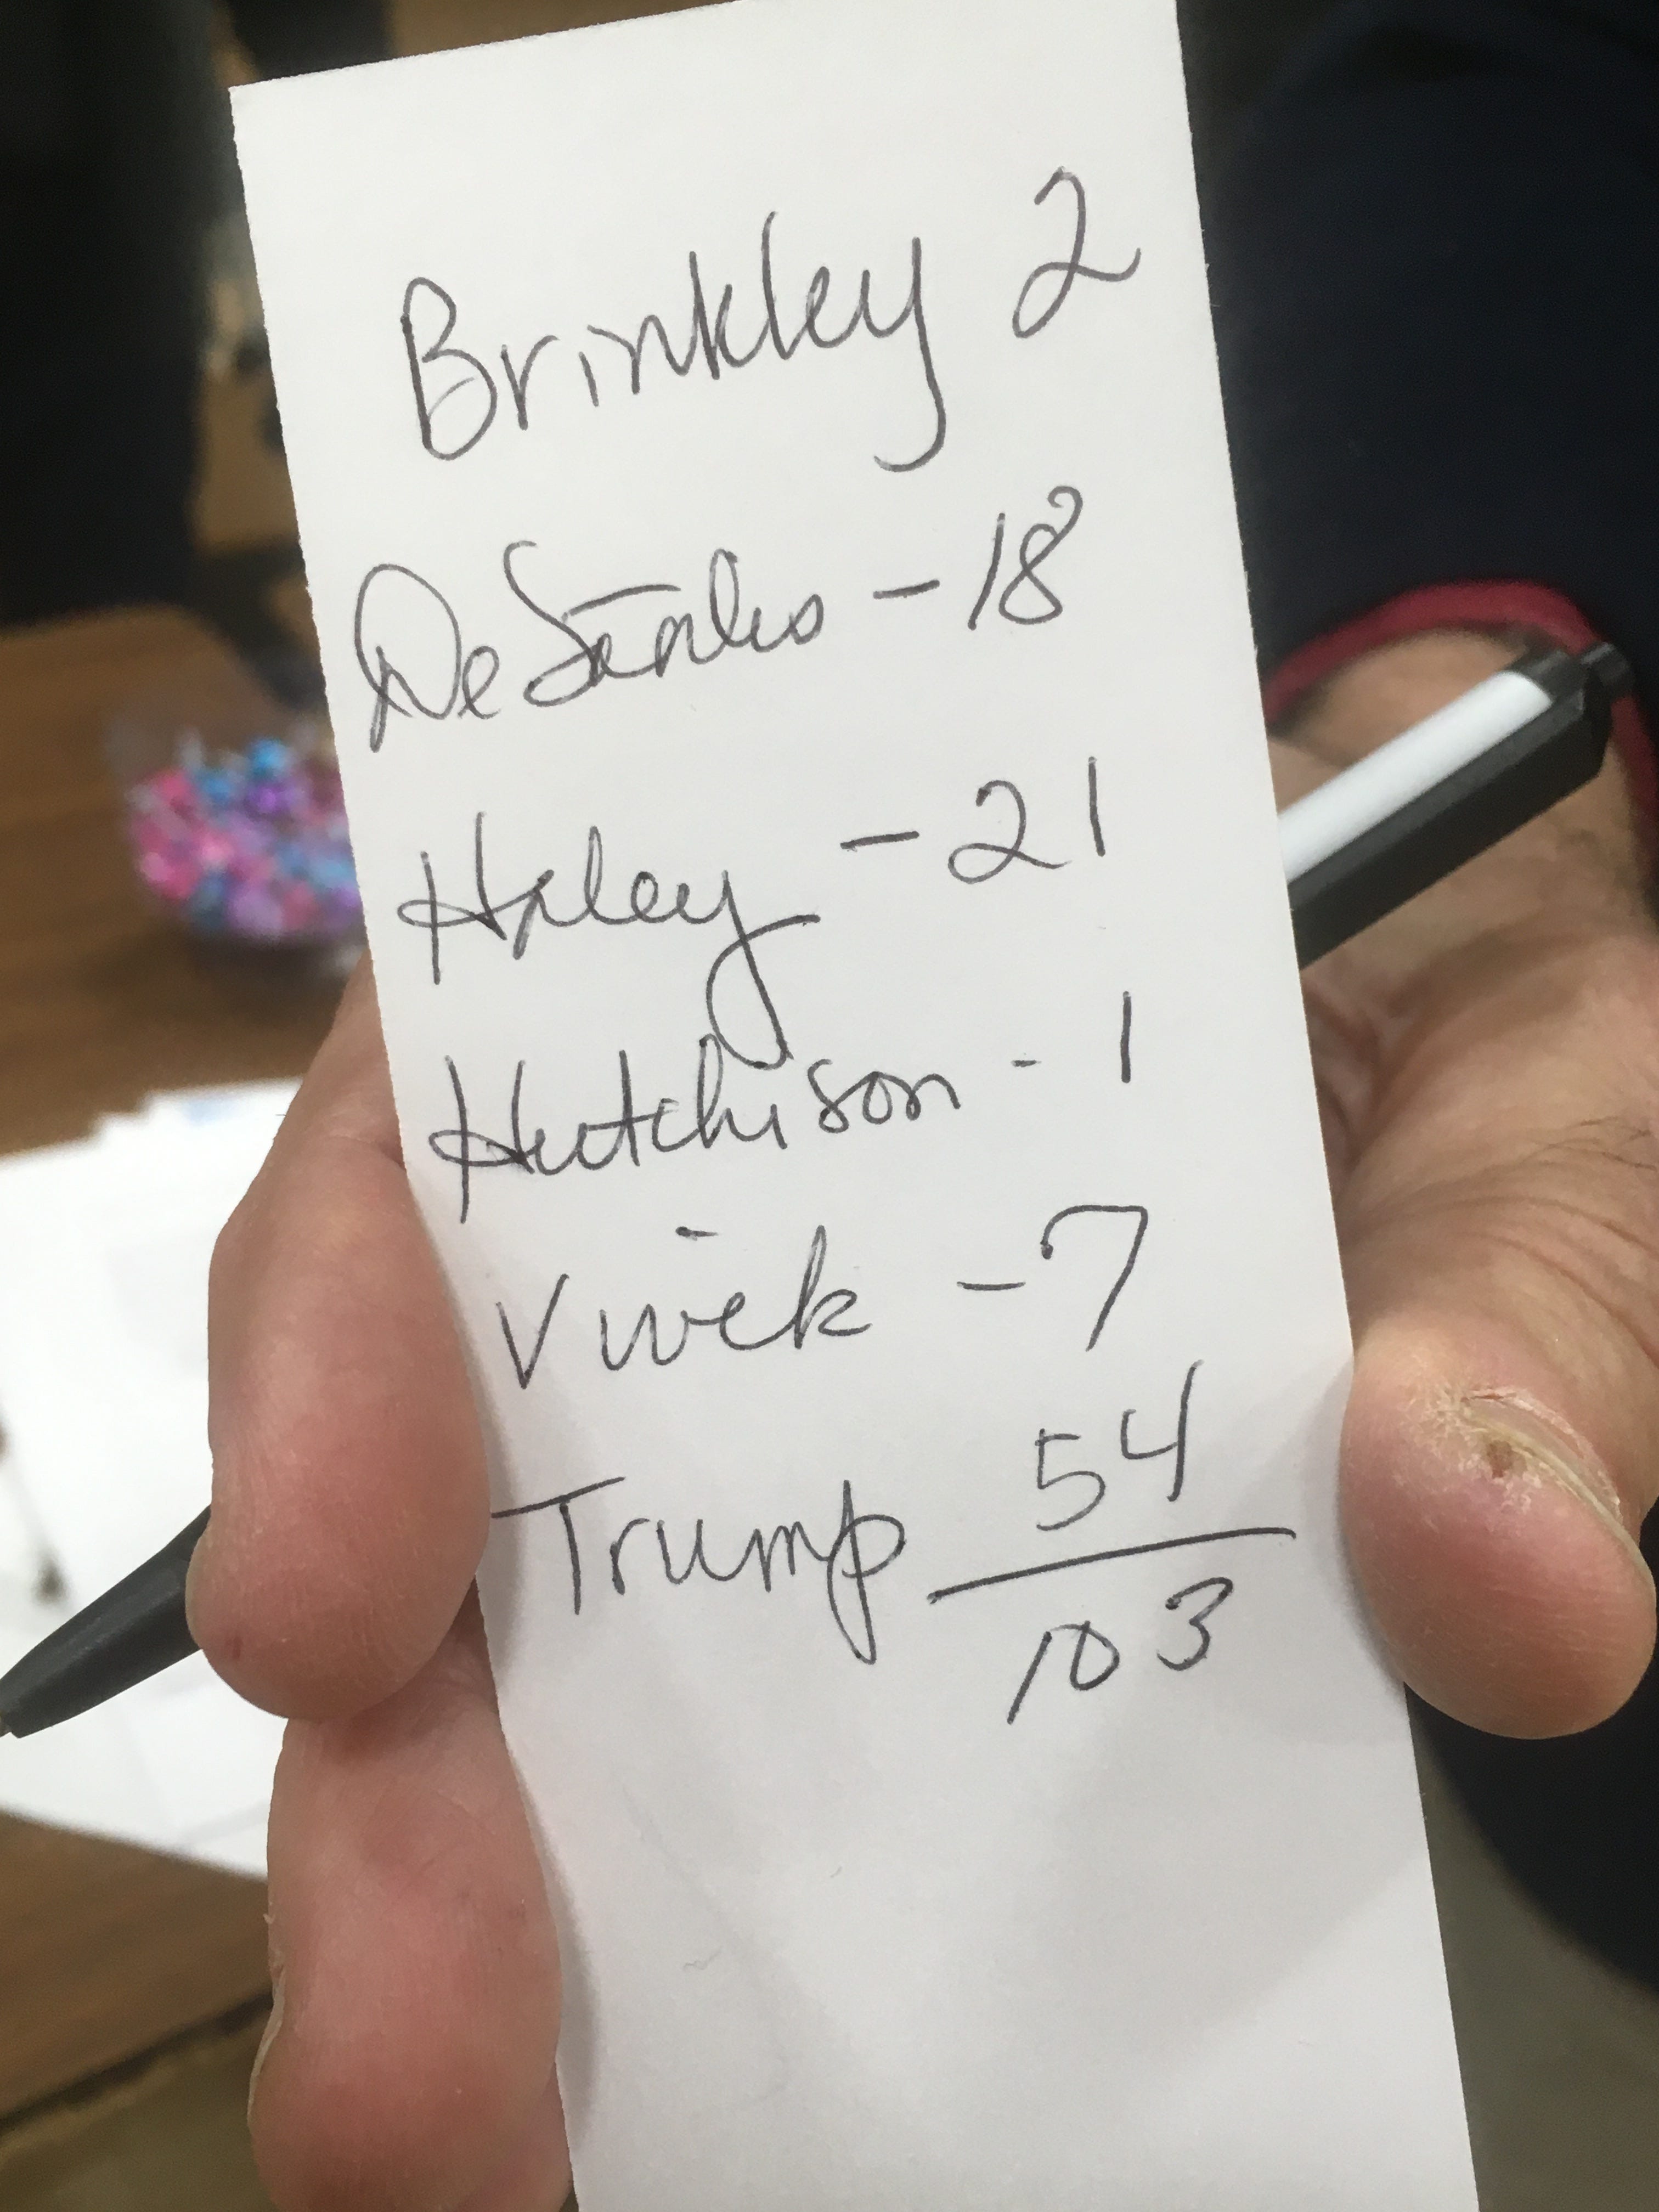 Brinkley 2
DeSantis - 18
Haley - 21
Hutchison - 1
Vivek - 7
Trump 54
103